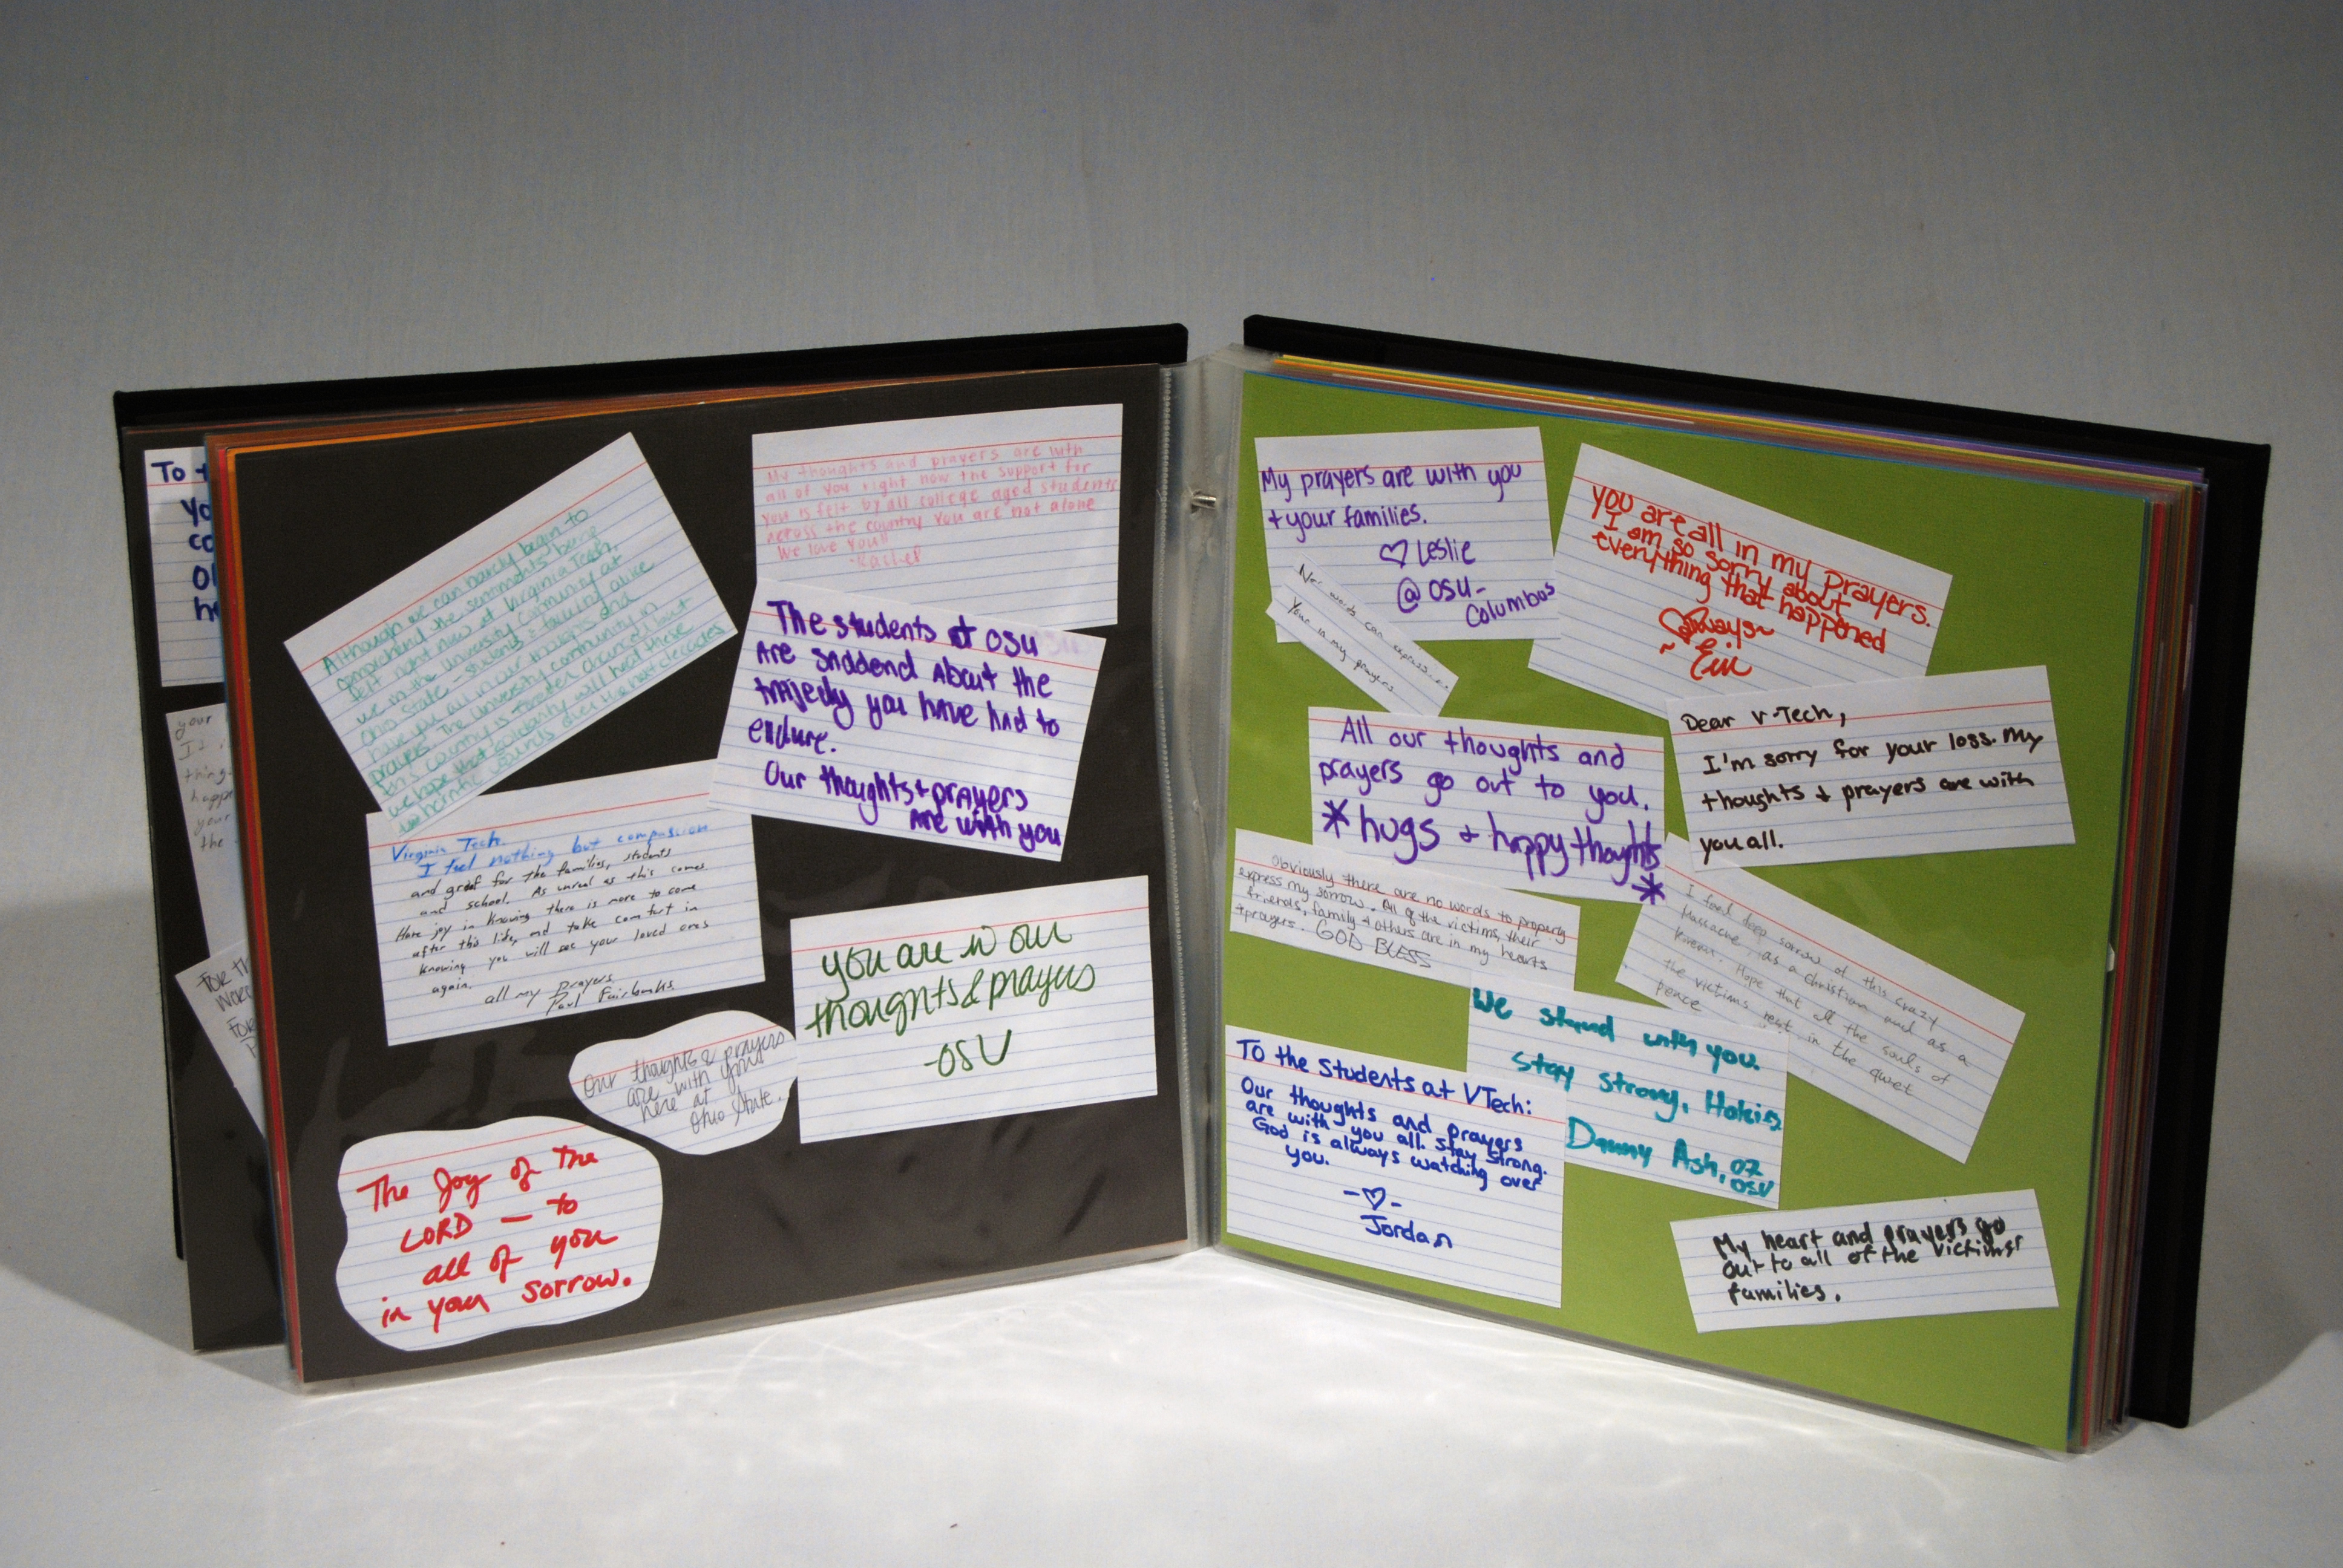 To
Yo
co
he
your
thing
happ
your
the
FOR th
WORD
FOR
Although we can hardly begin to
comprehend the sentiments being
felt right now at Virginia Tech,
we in the University Community at
Ohio State - students & faculty alike
have you all in our thoughts and
prayers. The University community in
this country is
we hope that solidarity will heal these
horrific wounds over the next decades
My thoughts and prayers are with
all of you right now the support for
you is felt by all college aged students
across the country you are not alone
We love you!!
-Rachel
The students at OSU
Are saddend About the
tragedy you have had to
endure.
Our thoughts + prayers
Are with you
Virginia Tech.
I feel nothing but compassion
and grief for the families, students
and school. As unreal as this comes
Have joy in knowing there is more to come
after this life, and take comfort in
knowing you will see your loved ones
again.
all my prayers,
Paul Fairbanks
you are in our
thoughts & prayers
-OSU
Our thoughts & prayers
are with you
here at
Ohio State.
The Joy of the
LORD — to
all of you
in your sorrow.
My prayers are with you
+ your families.
♡ Leslie
@ OSU-
Columbus
you are all in my prayers.
I am so sorry about
everything that happened
♡always~
~ Erin
No words can express...
Your in my prayers
All our thoughts and
prayers go out to you.
*hugs + happy thoughts
*
Dear V-Tech,
I'm sorry for your loss. My
thoughts + prayers are with
you all.
Obviously there are no words to properly
express my sorrow. All of the victims, their
friends, family + others are in my hearts
+ prayers. GOD BLESS
I feel deep sorrow of this crazy
Massacre, as a christian and as a
Korean. Hope that all the souls of
the victims rest in the quiet
peace
We stand with you.
Stay strong, Hokies
Danny Ash, 07
OSU
TO the Students at VTech:
Our thoughts and prayers
are with you all. Stay Strong.
God is always watching over
you.
-♡-
Jordan
My heart and prayers go
out to all of the victims'
families.